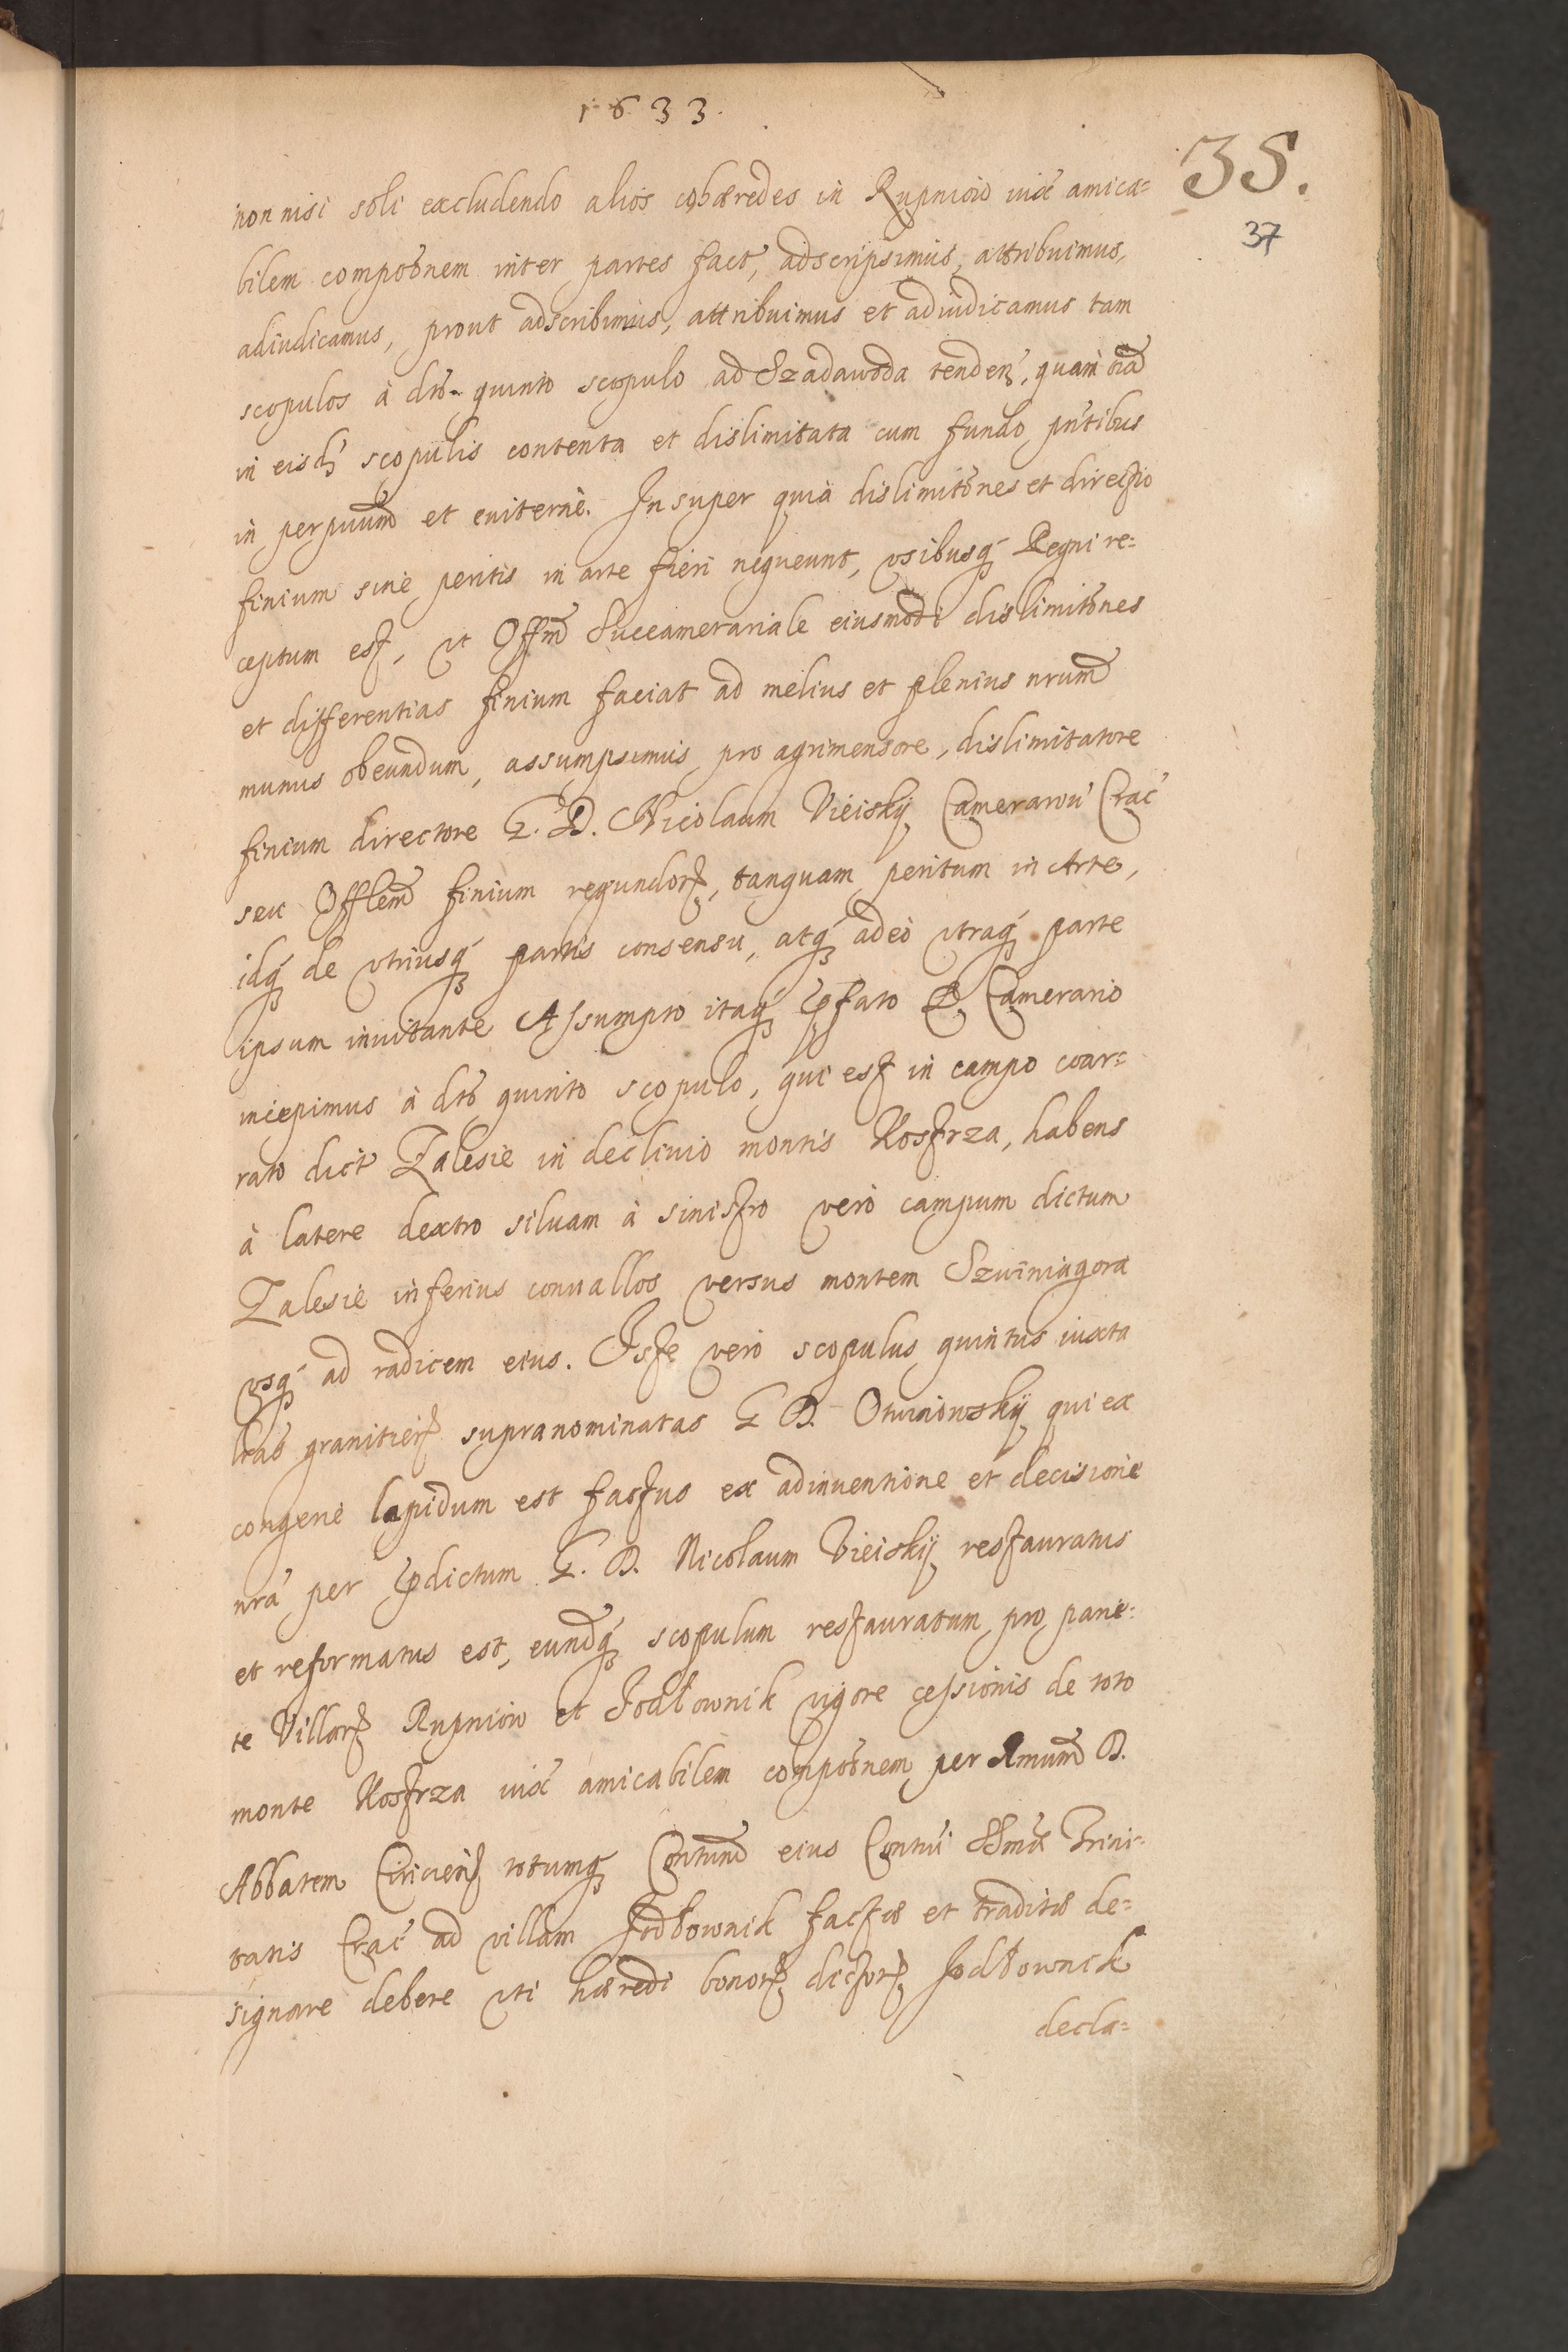 1633.
35.
37
non nisi soli excludendo alios cohæredes in Rupniow iux̃ amica=
bilem compoñem inter partes fact̃, adscripsimus, attribuimus,
adiudicamus, prout adscribimus, attribuimus et adiudicamus tam
scopulos à dt̃o quinto scopulo ad Szadawoda tendeñ, quam oĩa
in eisd̃ scopulis contenta et dislimitata cum fundo pñtibus
in perpuum̃ et euiternè. Insuper quia dislimitõnes et directio
finium sine peritis in arte fieri nequeunt, vsibusq́ Regni re=
ceptum est, vt Offm̃ Succamerariale eiusmodi dislimitõnes
et differentias finium faciat ad melius et plenius nrum̃
munus obeundum, assumpsimus pro agrimensore, dislimitatore
finium directore G. D. Nicolaum Vieiskÿ Camerariũ Crac̃
seu Offlem̃ finium regundoꝝ, tanquam peritum in Arte,
idq́ de vtriusq́ partis consensu, atq́ adeò vtraq́ parte
ipsum inuitante Assumpto itaq́ p̃fato D. Camerario
incepimus à dt̃o quinto scopulo, qui est in campo coar=
rato dict̃ Zalesie in decliuio montis Kostrza, habens
à latere dextro siluam à sinistro verò campum dictum
Zalesie inferius conuallos versus montem Szwiniagora
vsq́ ad radicem eius. Iste verò scopulus quintus iuxta
lrãs granitieꝝ supranominatas G D. Otwinowskÿ qui ex
congerie lapidum est factus ex adinuentione et decisione
nrã per p̃dictum G. D. Nicolaum Vieiskÿ restauratus
et reformatus est, eundq́ scopulum restauratum pro parie=
te Villarꝝ Rupniow et Jodłownik vigore cessionis de toto
monte Kostrza iux̃ amicabilem compoñem per Rmum̃ D.
Abbatem Ciricieñ totumq́ Contum̃ eius Contũi SSmæ Trini=
tatis Crac̃ ad villam Jodłownik factæ et traditæ de=
signare debere vti hæredi bonorꝝ dictorꝝ Jodłownik
decla=